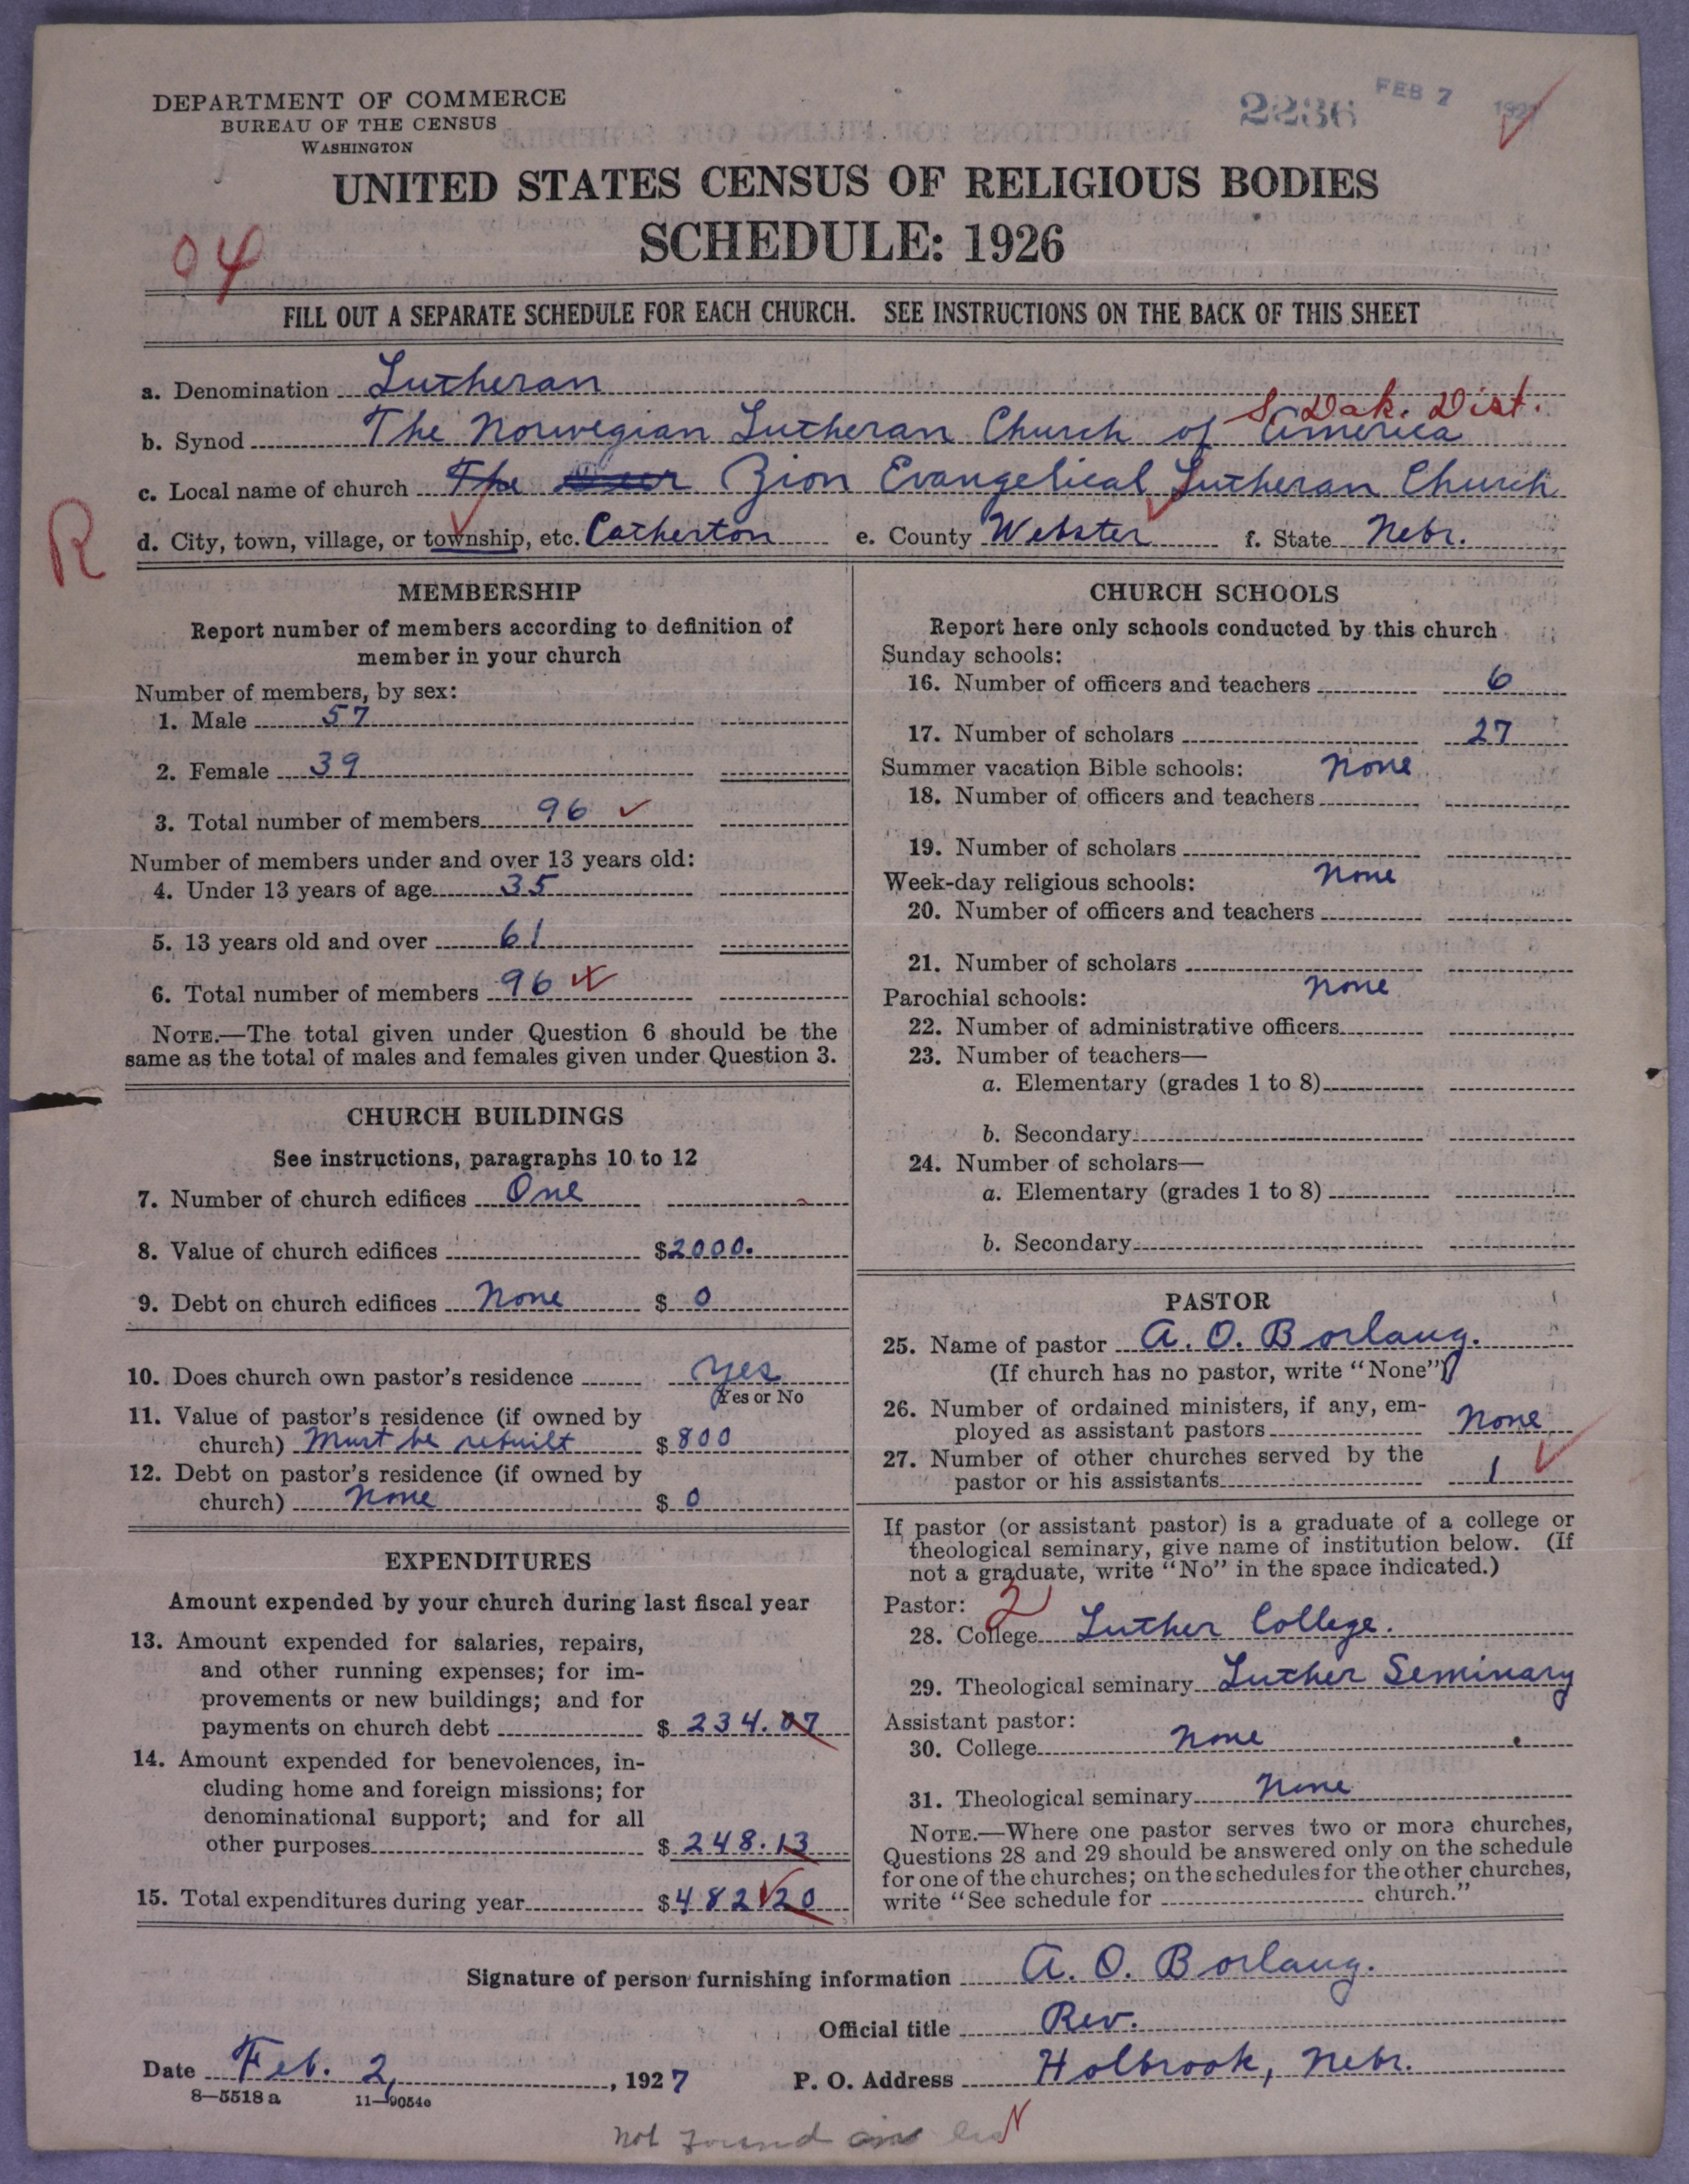 DEPARTMENT OF COMMERCE
BUREAU OF THE CENSUS
WASHINGTON
2236 FEB 7 1927
UNITED STATES CENSUS OF RELIGIOUS BODIES
SCHEDULE: 1926
04
FILL OUT A SEPARATE SCHEDULE FOR EACH CHURCH. SEE INSTRUCTIONS ON THE BACK OF THIS SHEET
a. Denomination Lutheran
S Dak. Dist.
b. Synod The Norwegian Lutheran Church of America
c. Local name of church The Zion Evangelical Lutheran Church
R
d. City, town, village, or township, etc. Catherton e. County Webster f. State Nebr.
MEMBERSHIP
Report number of members according to definition of
member in your church
Number of members, by sex:
1. Male 57
2. Female 39
3. Total number of members 96
Number of members under and over 13 years old:
4. Under 13 years of age 35
5. 13 years old and over 61
6. Total number of members 96
NOTE.—The total given under Question 6 should be the
same as the total of males and females given under Question 3.
CHURCH BUILDINGS
See instructions, paragraphs 10 to 12
7. Number of church edifices One
8. Value of church edifices $2000.
9. Debt on church edifices None $ 0
10. Does church own pastor's residence Yes
Yes or No
11. Value of pastor's residence (if owned by
church) Must be rebuilt $ 800
12. Debt on pastor's residence (if owned by
church) None $ 0
EXPENDITURES
Amount expended by your church during last fiscal year
13. Amount expended for salaries, repairs,
and other running expenses; for im-
provements or new buildings; and for
payments on church debt $ 234.07
14. Amount expended for benevolences, in-
cluding home and foreign missions; for
denominational support; and for all
other purposes $ 248.13
15. Total expenditures during year $ 482.20
CHURCH SCHOOLS
Report here only schools conducted by this church
Sunday schools:
16. Number of officers and teachers 6
17. Number of scholars 27
Summer vacation Bible schools: None
18. Number of officers and teachers
19. Number of scholars
Week-day religious schools: None
20. Number of officers and teachers
21. Number of scholars
Parochial schools: None
22. Number of administrative officers
23. Number of teachers—
a. Elementary (grades 1 to 8)
b. Secondary
24. Number of scholars—
a. Elementary (grades 1 to 8)
b. Secondary
PASTOR
25. Name of pastor A. O. Borlaug.
(If church has no pastor, write "None")
26. Number of ordained ministers, if any, em-
ployed as assistant pastors None
27. Number of other churches served by the
pastor or his assistants 1
If pastor (or assistant pastor) is a graduate of a college or
theological seminary, give name of institution below. (If
not a graduate, write "No" in the space indicated.)
Pastor: 2
28. College Luther College.
29. Theological seminary Luther Seminary
Assistant pastor:
30. College None
31. Theological seminary None
NOTE.—Where one pastor serves two or more churches,
Questions 28 and 29 should be answered only on the schedule
for one of the churches; on the schedules for the other churches,
write "See schedule for church."
Signature of person furnishing information A. O. Borlaug.
Official title Rev.
Date Feb. 2, 1927 P. O. Address Holbrook, Nebr.
8—5518 a 11—9054a
Not found